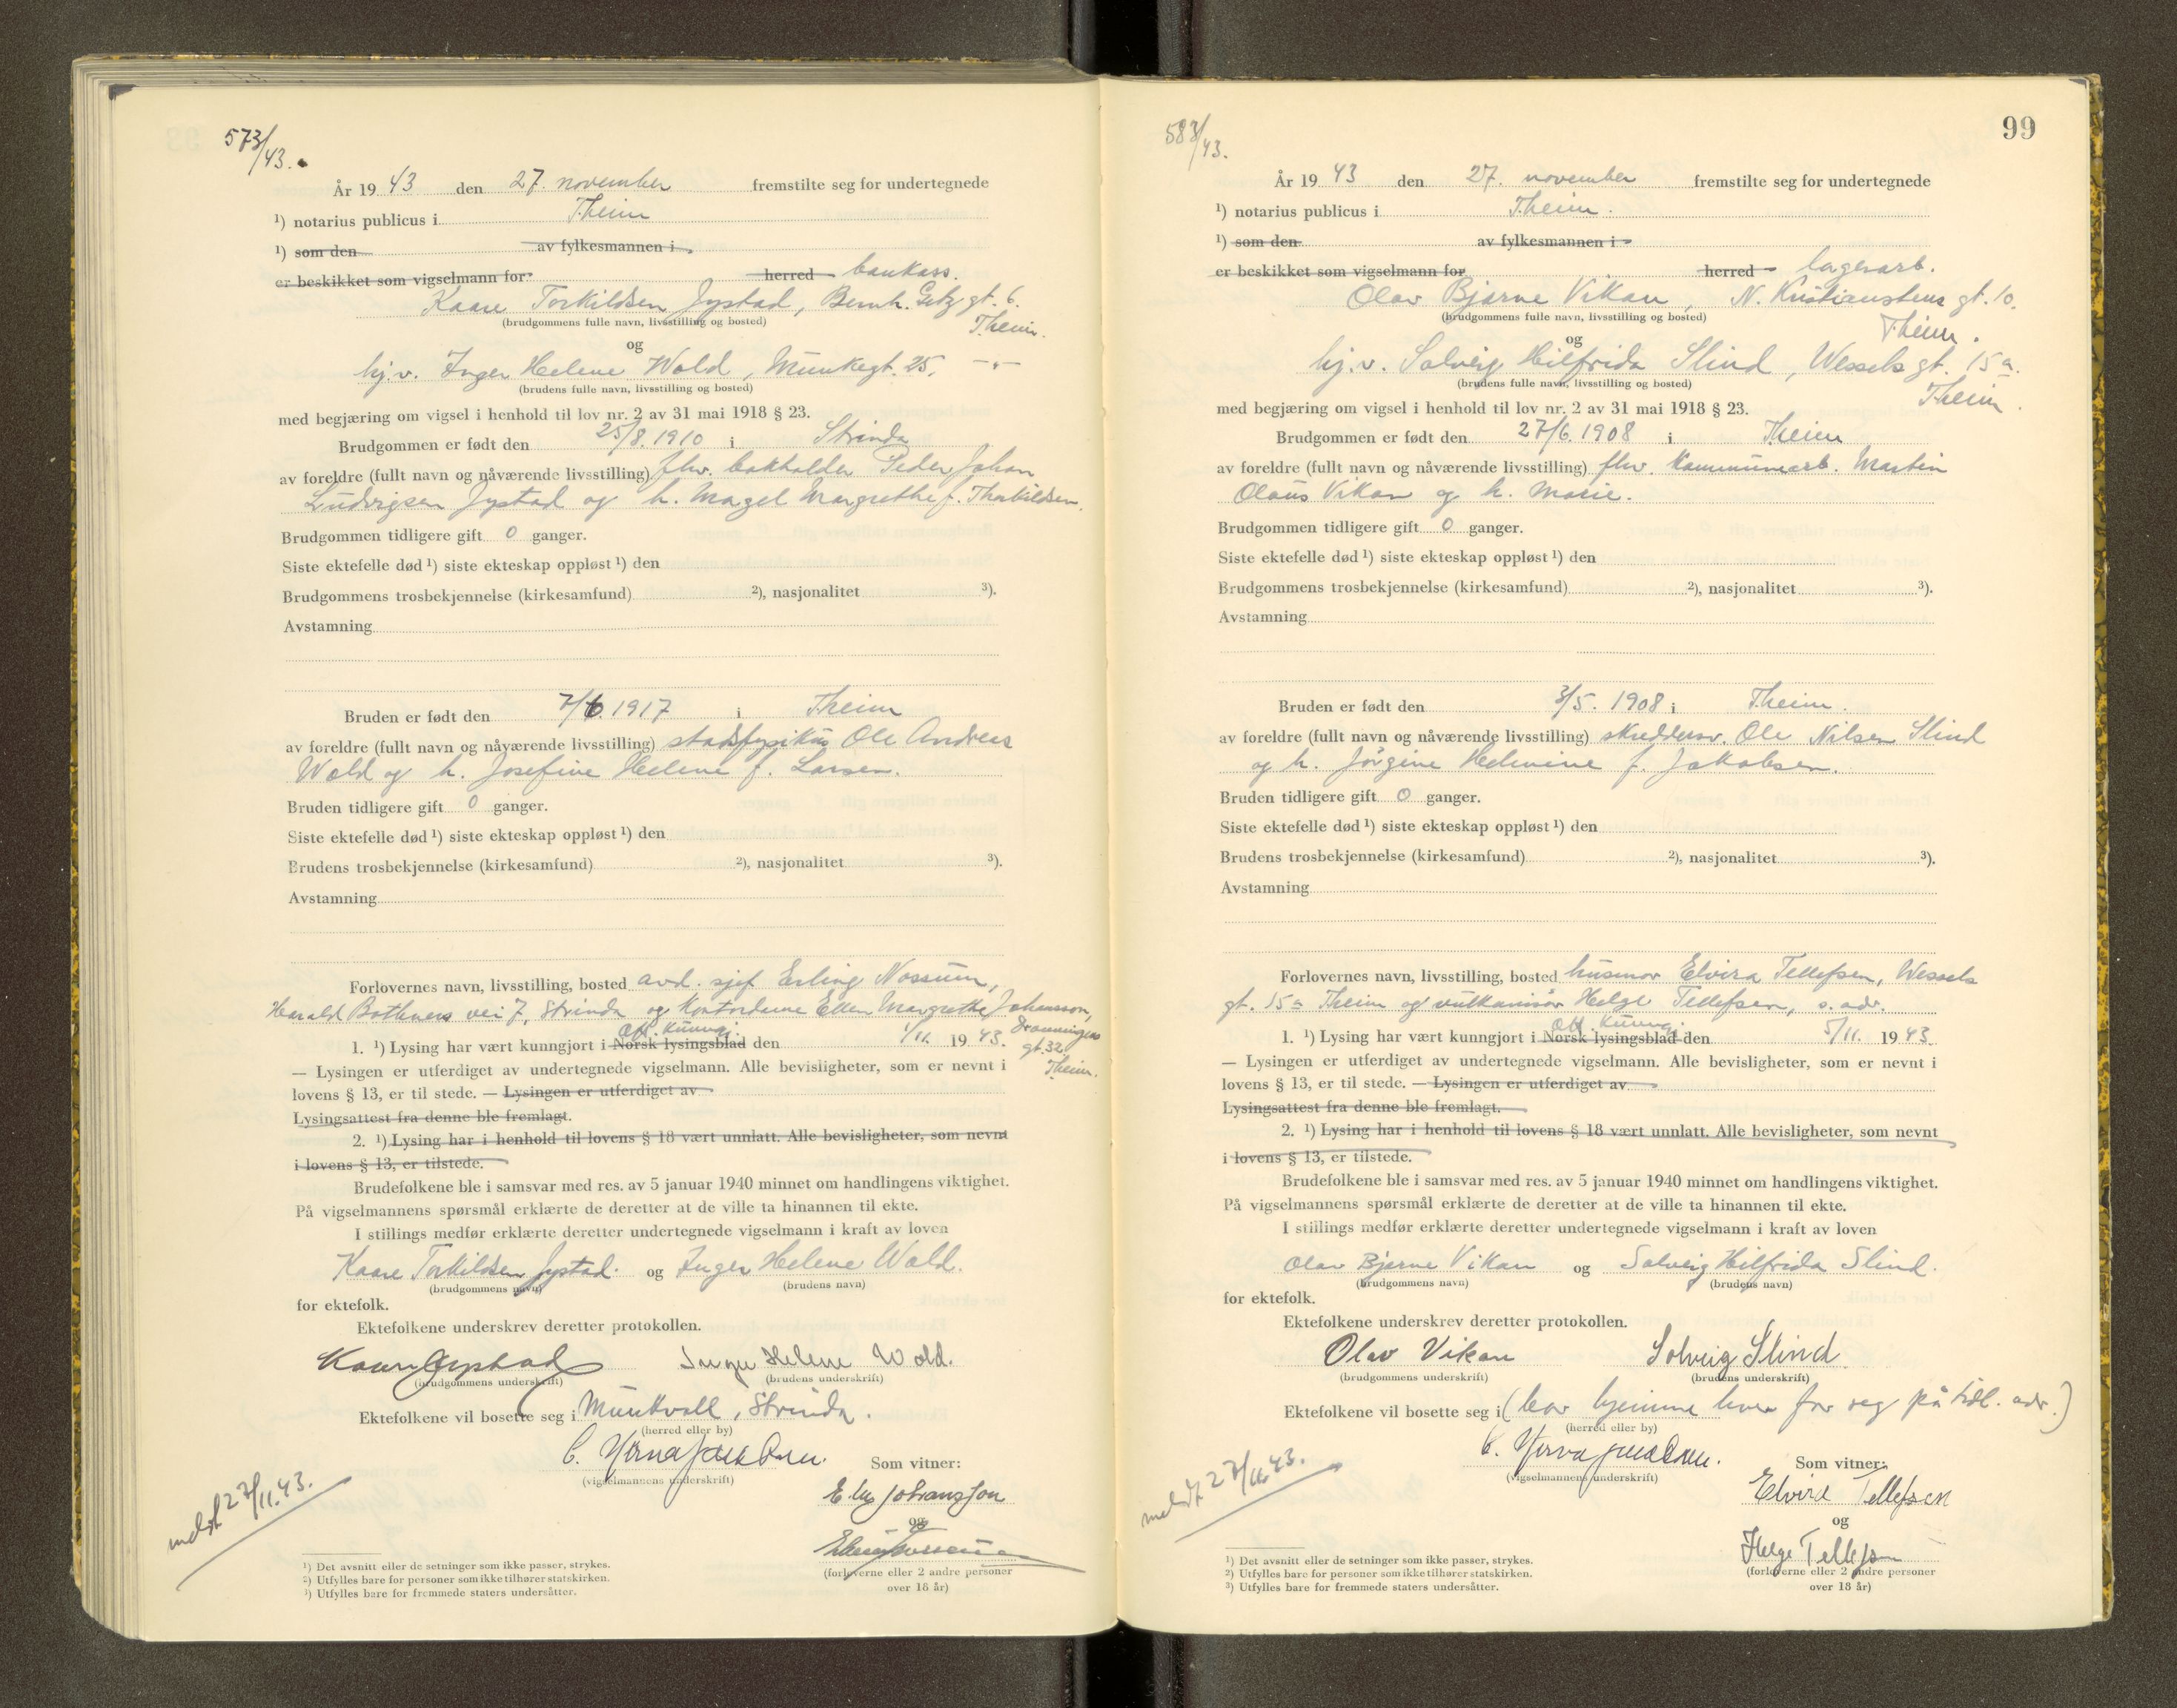 573/43.
År 19 43 den 27. november fremstilte seg for undertegnede
¹) notarius publicus i T.heim
¹) som den av fylkesmannen i
er beskikket som vigselmann for herred bankass.
Kaare Torkildsen Jystad, Bernh. Getz gt. 6.
(brudgommens fulle navn, livsstilling og bosted) T.heim.
og
hj.v. Inger Helene Wold, Munkegt. 25, -"-
(brudens fulle navn, livsstilling og bosted)
med begjæring om vigsel i henhold til lov nr. 2 av 31 mai 1918 § 23.
Brudgommen er født den 25/8. 1910 i Strinda
av foreldre (fullt navn og nåværende livsstilling) fhv. bokholder Peder Johan
Ludvigsen Jystad og h. Magel Margrethe f. Thorkildsen.
Brudgommen tidligere gift 0 ganger.
Siste ektefelle død ¹) siste ekteskap oppløst ¹) den
Brudgommens trosbekjennelse (kirkesamfund) ²), nasjonalitet ³).
Avstamning
Bruden er født den 7/6. 1917 i T.heim
av foreldre (fullt navn og nåværende livsstilling) stadsfysikus Ole Andreas
Wold og h. Josefine Helene f. Larsen.
Bruden tidligere gift 0 ganger.
Siste ektefelle død ¹) siste ekteskap oppløst ¹) den
Brudens trosbekjennelse (kirkesamfund) ²), nasjonalitet ³).
Avstamning
Forlovernes navn, livsstilling, bosted avd. sjef Erling Nossum,
Harald Bothners vei 7, Strinda og kontordame Ellen Margrethe Johansson,
Off. kunngj. Dronningens
1. ¹) Lysing har vært kunngjort i Norsk lysingsblad den 1/11. 19 43. gt. 32.
— Lysingen er utferdiget av undertegnede vigselmann. Alle bevisligheter, som er nevnt i T.heim.
lovens § 13, er til stede. — Lysingen er utferdiget av
Lysingsattest fra denne ble fremlagt.
2. ¹) Lysing har i henhold til lovens § 18 vært unnlatt. Alle bevisligheter, som nevnt
i lovens § 13, er tilstede.
Brudefolkene ble i samsvar med res. av 5 januar 1940 minnet om handlingens viktighet.
På vigselmannens spørsmål erklærte de deretter at de ville ta hinannen til ekte.
I stillings medfør erklærte deretter undertegnede vigselmann i kraft av loven
Kaare Torkildsen Jystad. og Inger Helene Wold.
(brudgommens navn) (brudens navn)
for ektefolk.
Ektefolkene underskrev deretter protokollen.
Kaare Jystad Inger Helene Wold.
(brudgommens underskrift) (brudens underskrift)
Ektefolkene vil bosette seg i Munkvoll, Strinda.
(herred eller by)
C.
(vigselmannens underskrift) Som vitner:
Johansson
og
Erling Nossum
(forloverne eller 2 andre personer
over 18 år)
meldt 27/11.43.
¹) Det avsnitt eller de setninger som ikke passer, strykes.
²) Utfylles bare for personer som ikke tilhører statskirken.
³) Utfylles bare for fremmede staters undersåtter.
99
583/43.
År 19 43 den 27. november fremstilte seg for undertegnede
¹) notarius publicus i T.heim.
¹) som den av fylkesmannen i
er beskikket som vigselmann for herred lagerarb.
Olav Bjarne Vikan, N. Kristianstens gt. 10.
(brudgommens fulle navn, livsstilling og bosted) T.heim.
og
hj.v. Solveig Hilfrida Slind, Wessels gt. 15a.
(brudens fulle navn, livsstilling og bosted) T.heim.
med begjæring om vigsel i henhold til lov nr. 2 av 31 mai 1918 § 23.
Brudgommen er født den 27/6. 1908 i T.heim
av foreldre (fullt navn og nåværende livsstilling) fhv. kommunearb. Martin
Olaus Vikan og h. Marie.
Brudgommen tidligere gift 0 ganger.
Siste ektefelle død ¹) siste ekteskap oppløst ¹) den
Brudgommens trosbekjennelse (kirkesamfund) ²), nasjonalitet ³).
Avstamning
Bruden er født den 3/5. 1908 i T.heim.
av foreldre (fullt navn og nåværende livsstilling) skreddersv. Ole Nilsen Slind
og h. Jørgine Helmine f. Jakobsen.
Bruden tidligere gift 0 ganger.
Siste ektefelle død ¹) siste ekteskap oppløst ¹) den
Brudens trosbekjennelse (kirkesamfund) ²), nasjonalitet ³).
Avstamning
Forlovernes navn, livsstilling, bosted husmor Elvira Tellefsen, Wessels
gt. 15a T.heim og vulkanisør Helge Tellefsen, s. adr.
Off. kunngj.
1. ¹) Lysing har vært kunngjort i Norsk lysingsblad den 5/11. 19 43
— Lysingen er utferdiget av undertegnede vigselmann. Alle bevisligheter, som er nevnt i
lovens § 13, er til stede. — Lysingen er utferdiget av
Lysingsattest fra denne ble fremlagt.
2. ¹) Lysing har i henhold til lovens § 18 vært unnlatt. Alle bevisligheter, som nevnt
i lovens § 13, er tilstede.
Brudefolkene ble i samsvar med res. av 5 januar 1940 minnet om handlingens viktighet.
På vigselmannens spørsmål erklærte de deretter at de ville ta hinannen til ekte.
I stillings medfør erklærte deretter undertegnede vigselmann i kraft av loven
Olav Bjarne Vikan og Solveig Hilfrida Slind.
(brudgommens navn) (brudens navn)
for ektefolk.
Ektefolkene underskrev deretter protokollen.
Olav Vikan Solveig Slind
(brudgommens underskrift) (brudens underskrift)
Ektefolkene vil bosette seg i (bor hjemme hver for seg på tidl. adr.)
(herred eller by)
C.
(vigselmannens underskrift) Som vitner:
Elvira Tellefsen
og
Helge Tellefsen
(forloverne eller 2 andre personer
over 18 år)
meldt 27/11.43.
¹) Det avsnitt eller de setninger som ikke passer, strykes.
²) Utfylles bare for personer som ikke tilhører statskirken.
³) Utfylles bare for fremmede staters undersåtter.